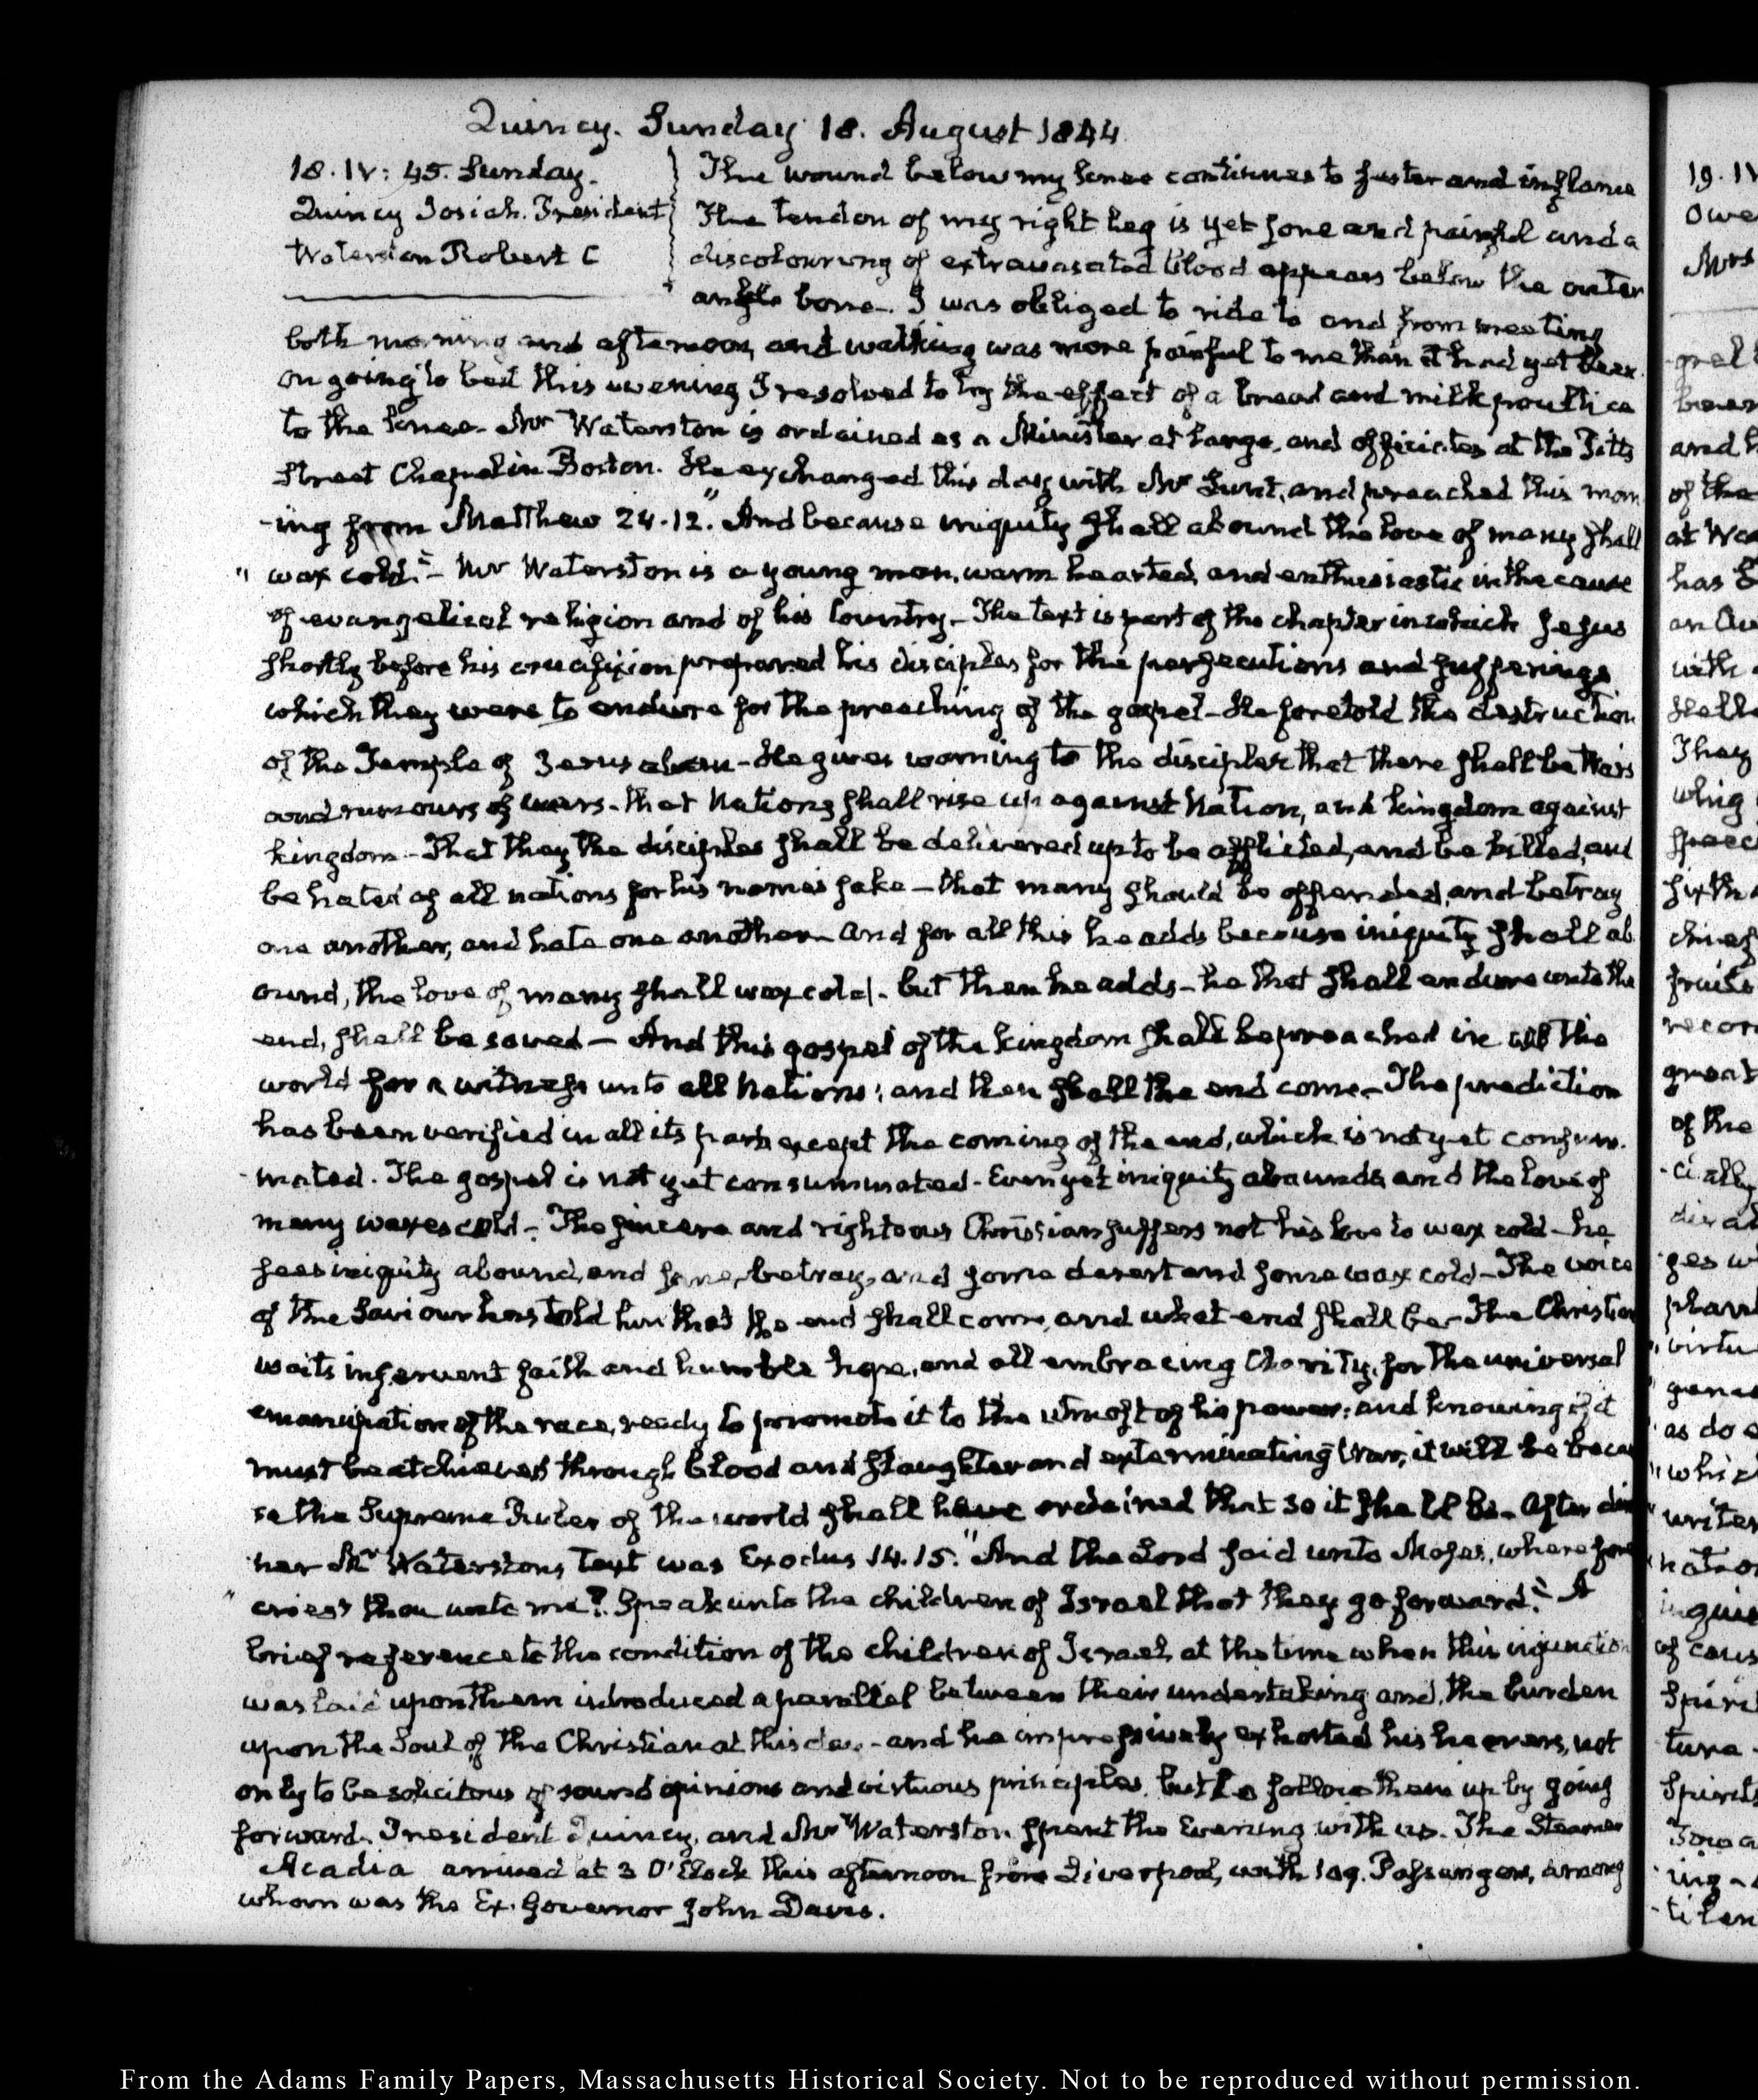 Quincy. Sunday 18. August 1844
18. IV: 45. Sunday.
Quincy Josiah. President
Waterston Robert C
The wound below my knee continues to fester and inflame
The tendon of my right leg is yet sore and painful and a
discolouring of extravasated blood appears below the outer
ankle bone. I was obliged to ride to and from meeting
both morning and afternoon, and walking was more painful to me than it had yet been.
On going to bed this evening I resolved to try the effect of a bread and milk poultice
to the knee. Mr Waterston is ordained as a Minister at large, and officiates at the Pitts
Street Chapel in Boston. He exchanged this day with Mr Lunt, and preached this morn
-ing from Matthew 24.12. "And because iniquity shall abound the love of many shall
" wax cold." - Mr Waterston is a young man, warm hearted, and enthusiastic in the cause
of evangelical religion and of his Country - The text is part of the chapter in which Jesus
shortly before his crucifixion prepared his disciples for the persecutions and sufferings
which they were to endure for the preaching of the gospel - He foretold the destruction
of the Temple of Jerusalem - He gives warning to the disciples that there shall be Wars
and rumours of wars - that Nations shall rise up against Nation, and kingdom against
kingdom - That they the disciples shall be delivered up to be afflicted, and be killed, and
be hated of all nations for his names sake - that many should be offended, and betray
one another, and hate one another - and for all this he adds because iniquity shall ab
ound, the love of many shall wax cold - but then he adds - he that shall endure unto the
end, shall be saved - And this gospel of the kingdom shall be preached in all the
world for a witness unto all Nations; and then shall the end come - The prediction
has been verified in all its parts except the coming of the end, which is not yet consum-
-mated. The gospel is not yet consummated - Even yet iniquity abounds and the love of
many waxes cold - The sincere and righteous Christian suffers not his love to wax cold - he
sees iniquity abound, and some betray, and some desert and some wax cold - The voice
of the Saviour has told him that the end shall come, and what end shall be - The Christian
waits in fervent faith and humble hope, and all embracing Charity, for the universal
emancipation of the race, ready to promote it to the utmost of his power; and knowing if it
must be atchieved through blood and slaughter and exterminating War, it will be becau
se the Supreme Ruler of the world shall have ordained that so it shall be - After din
ner Mr Waterstons text was Exodus 14.15. "And the Lord said unto Moses, wherefore
" criest thou unto me? Speak unto the children of Israel that they go forward." - A
brief reference to the condition of the children of Israel at the time when this injunction
was laid upon them introduced a parallel between their undertaking and, the burden
upon the Soul of the Christian at this day - and he impressively exhorted his hearers, not
only to be solicitous of sound opinions and virtuous principles, but to follow them up by going
forward. President Quincy, and Mr Waterston spent the Evening with us. The Steamer
Acadia arrived at 3 O'Clock this afternoon from Liverpool, with 109. Passengers, among
whom was the Ex-Governor John Davis.
From the Adams Family Papers, Massachusetts Historical Society. Not to be reproduced without permission.